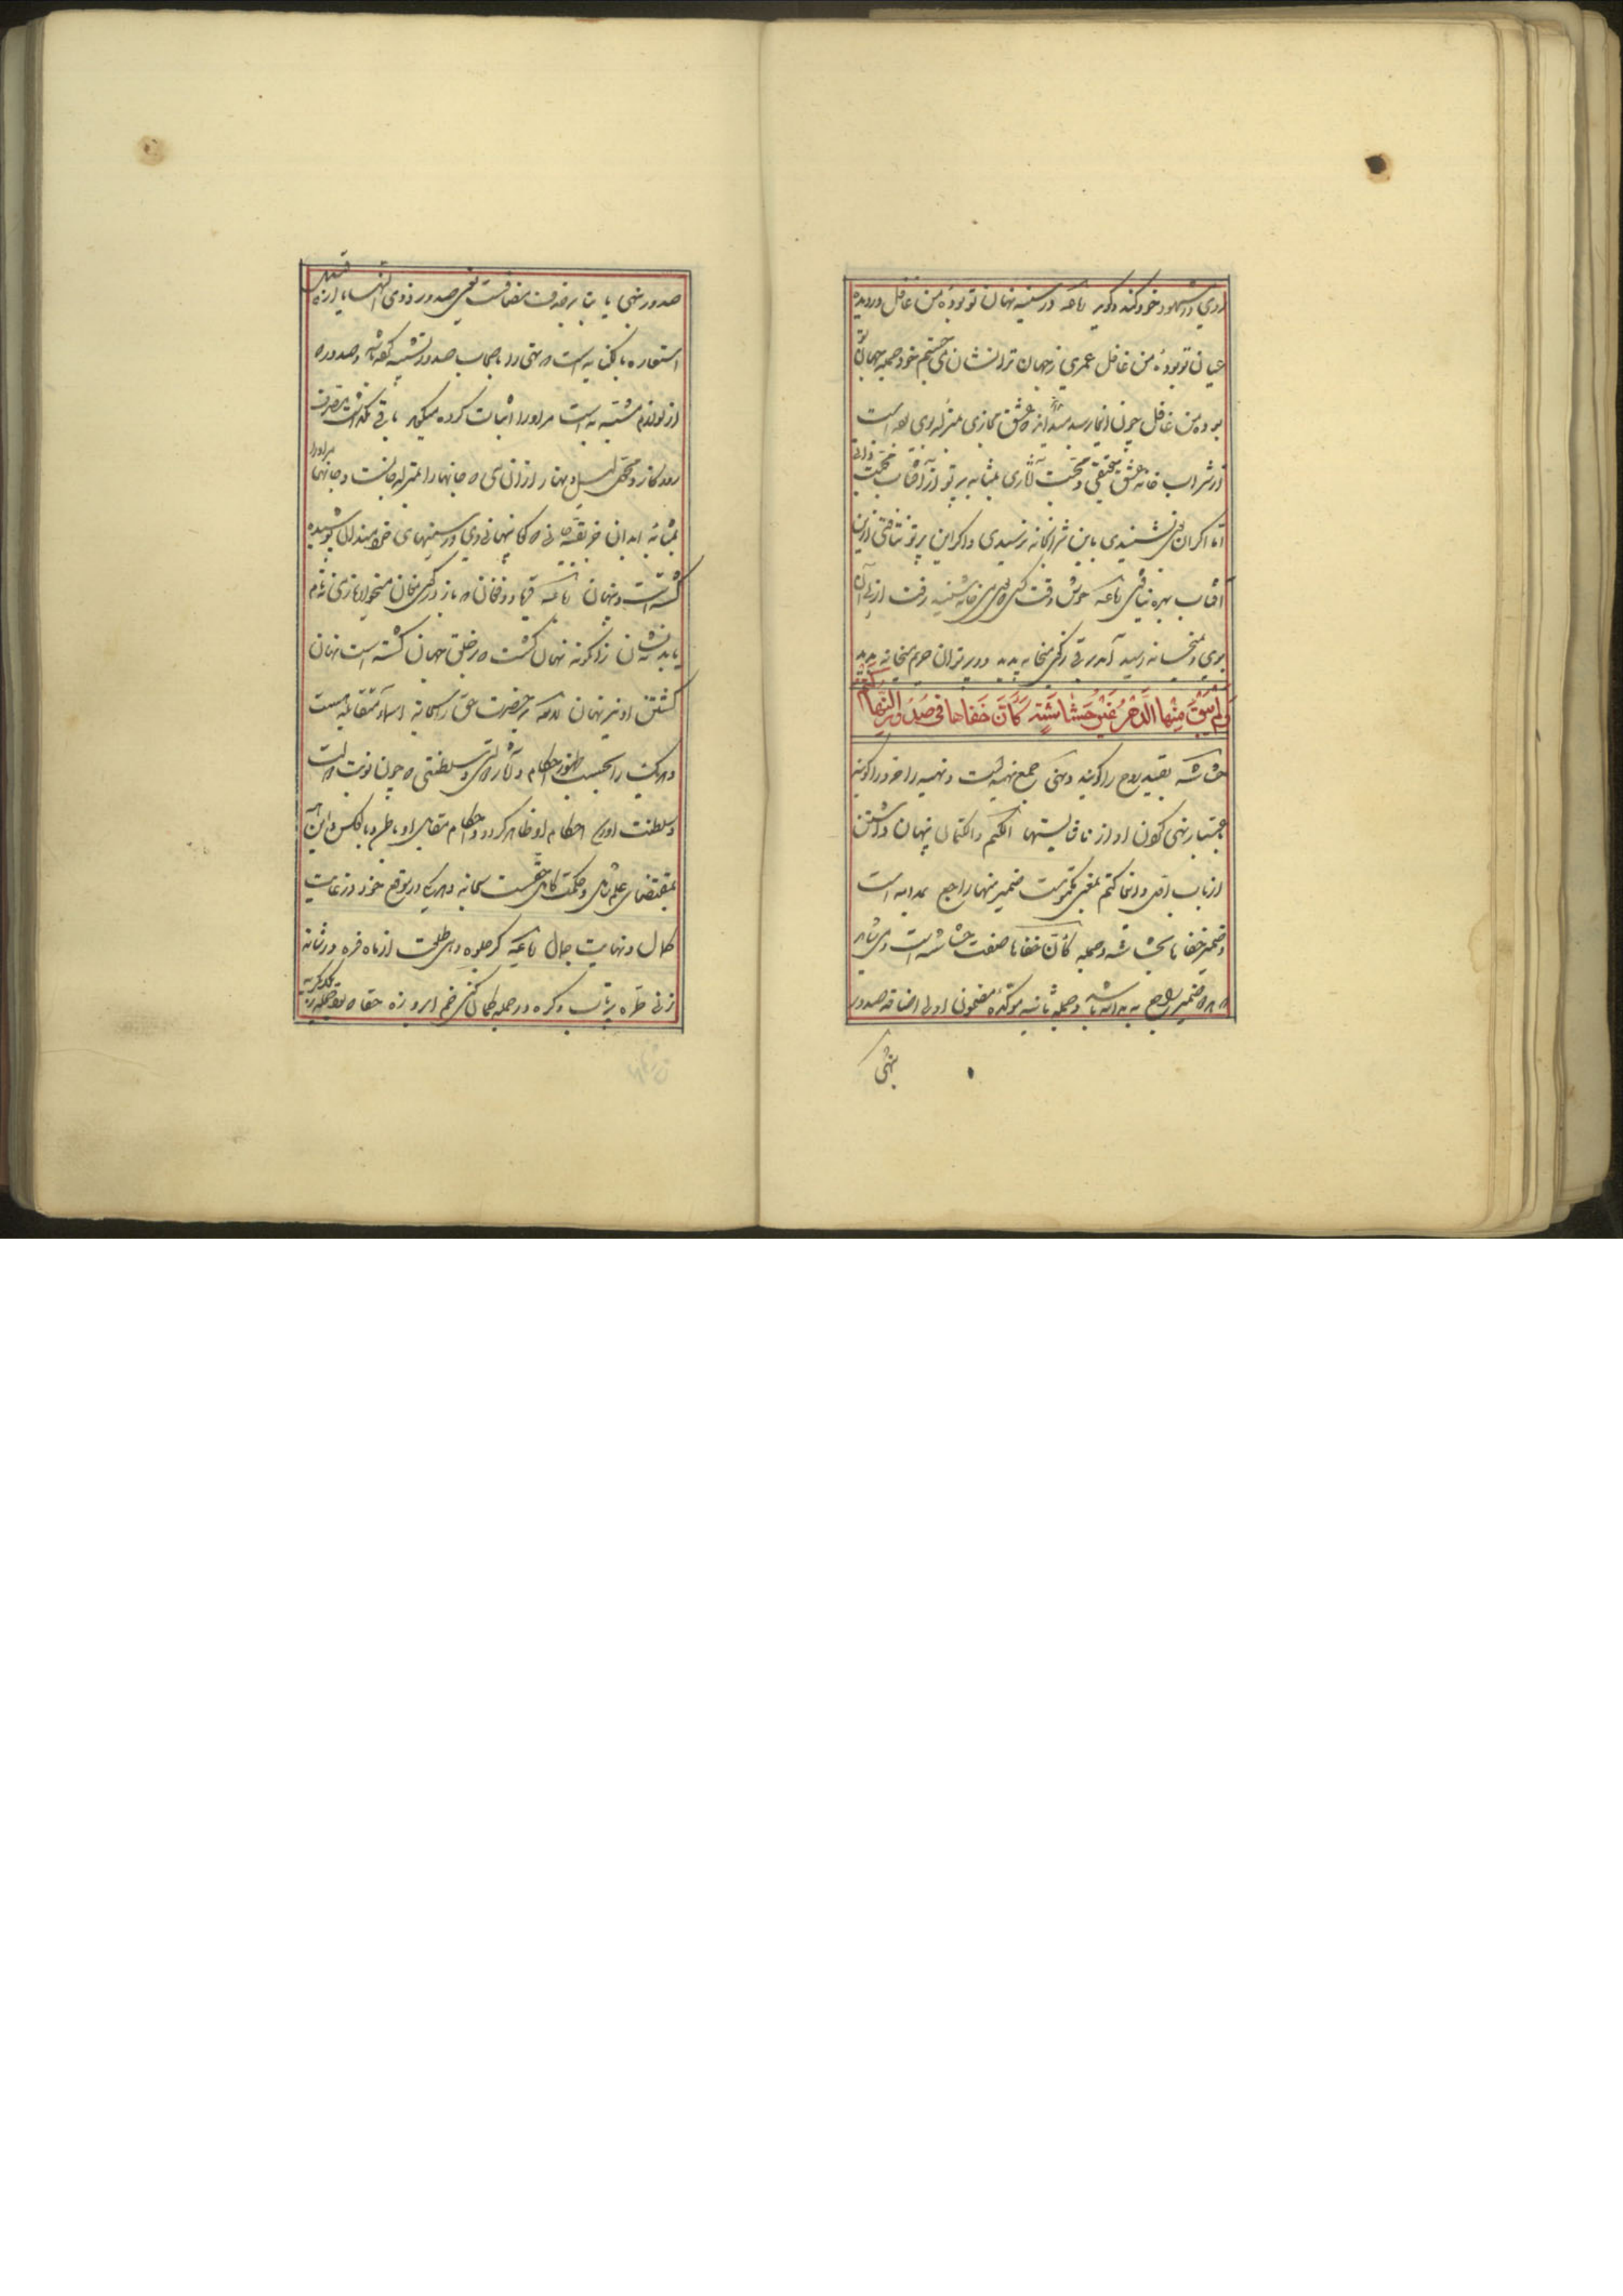 روی در شهود خود کند و گوید رباعیه در سینه نهان تو بوده من غافل در دیده
عیان تو بوده من غافل عمری ز جهان ترا نشان می جستم خود جمله جهان تو
بوده من غافل چون اینجا رسد بداند که عشق مجازی بمنزله بوی بوده است
از شراب خانه عشق حقیقی و محبت آثاری بمثابه پرتو از آفتاب محبت ذاتی
اما اگر آن بوی نشنیدی باین شرابخانه نرسیدی و اگر این پرتو نتافتی ازین
آفتاب بهره نیافتی رباعیه خوش وقت کسی که بوی میخانه شنید رفت از پی آن
بوی و بمیخانه رسید آمد برقی ز کوی میخانه پدید در پرتو آن حریم میخانه بدید
وَلَم يُبْقِ مِنْها الدَّهْرُ غَيْرَ حُشاشَةٍ كَأَنَّ خَفاها في صُدُورِ النُّهى كَتْمُ
حشاشه بقیه روح را گویند و نهی جمع نهیه است و نهیه را خرد را گویند
باعتبار نهی کردن او از ناشایستها الکتم و الکتمان پنهان داشتن
از باب اول و اینجا کتم بمعنی مکتومست ضمیر منها راجع بمدامه است
و ضمیر خفاها بحشاشه و جمله کان خفاها صفت حشاشه است و می شاید
که هر دو ضمیر راجع بمدامه باشد و جمله ثانیه مؤکده مضمون اولی اضافه صدور
نهی
صدور نهی یا بنا بر حذف مضافست یعنی صدور ذوی النهی یا از قبیل
استعاره بالکنایه است که نهی را باصحاب صدور تشبیه کرده باشد و صدور که
از لوازم مشبه به است مر او را اثبات کرده میگوید باقی نگذاشت تصرف
روزگار و محول لیل و نهار از ان می که جانها را بمنزله جانست و جانها مر او را
بمثابه ابدان جز بقیه جانی که گویا پنهانی وی در سینهای خردمندان پوشیده
گشته است و پنهان رباعیه فریاد و فغان که باز در کوی مغان میخواره ز می نه نام
یابد نه نشان زانگونه نهان گشت که بر خلق جهان گشته است نهان
گشتن او نیز نهان لامعه حضرت حق را سبحانه اسماء متقابله هست
و هر یک را بحسب ظهور احکام و آثار دولتی و سلطنتی که چون نوبت دولت
و سلطنت او رسد احکام او ظاهر گردد و احکام مقابل او باطن و بالعکس و این همه
بمقتضای علم شامل و حکمت کامل حقست سبحانه و هر یک در موقع خود در غایت
کمال و نهایت جمال رباعیه گر جلوه دهی طلعت از ماه فره ور شانه
زنی طره پرتاب و گره ور حمله کمان کنی خم ابرو زه حقا که